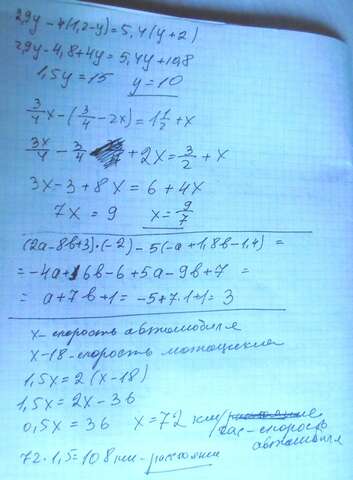 2,9y - 4(1,2-y) = 5,4(y+2)
2,9y - 4,8 + 4y = 5,4y + 10,8
1,5y = 15 y = 10
3/4x - (3/4 - 2x) = 1 1/2 + x
3x/4 - 3/4 + 2x = 3/2 + x
3x - 3 + 8x = 6 + 4x
7x = 9 x = 9/7
(2a - 8b + 3)·(-2) - 5(-a + 1,8b - 1,4) =
= -4a + 16b - 6 + 5a - 9b + 7 =
= a + 7b + 1 = -5 + 7·1 + 1 = 3
x - скорость автомобиля
x - 18 - скорость мотоцикла
1,5x = 2(x - 18)
1,5x = 2x - 36
0,5x = 36 x = 72 км/
час - скорость
автомобиля
72·1,5 = 108 км - расстояние